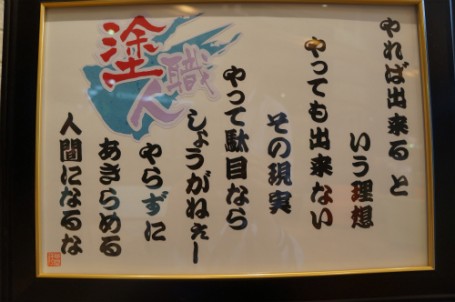 やれば出来ると
いう理想
やっても出来ない
その現実
やって駄目なら
しょうがねぇー
やらずに
あきらめる
人間になるな
塗職人